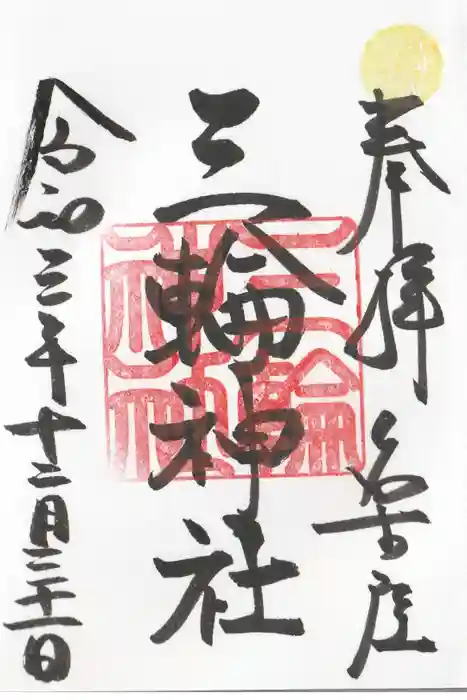 奉拝 名古屋
三輪神社
令和三年十二月三十一日
三輪
神社